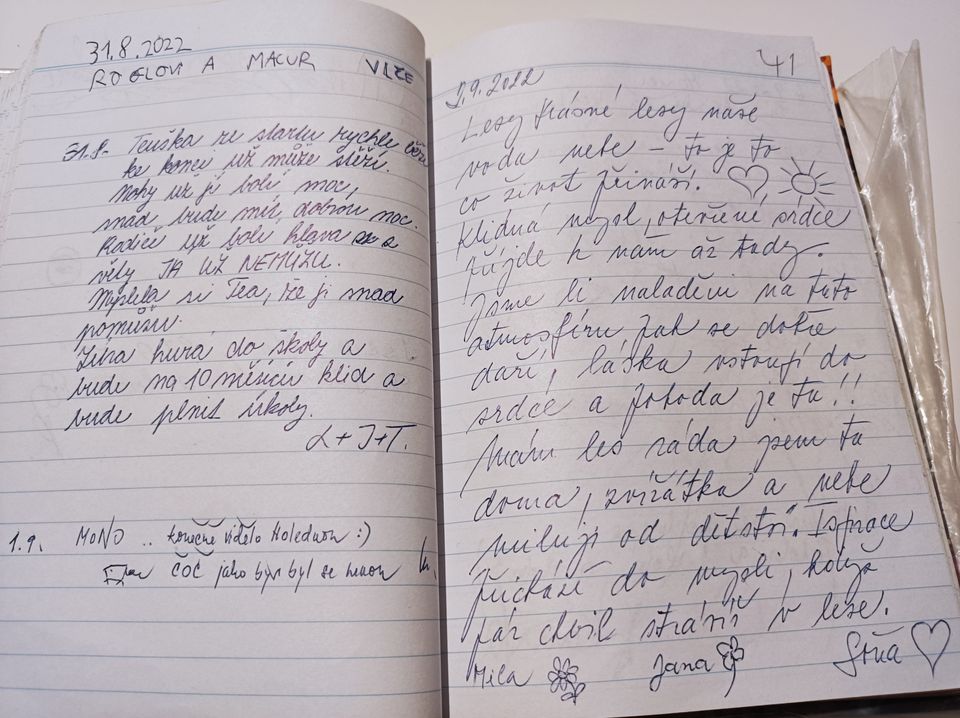 31.8.2022
ROGLOVI A MACUR VLČE
31.8. Teuška ze startu rychle běží
ke konci už může stěží.
Nohy už ji bolí moc,
snad bude mít dobrou noc.
Rodiče už bolí hlava
věty JA UŽ NEMŮŽU.
Myslela si Tea, že ji snad
pomůžu.
Zítra hurá do školy a
bude na 10 měsíců klid a
bude plnit úkoly.
L+J+T.
1.9. MONO .. konečně vidělo Holednou :)
ČOČ jako bys byl se mnou
41
2.9.2022
Lesy krásné lesy naše
voda nebe – to je to
co život přináší.
Klidná mysl, otevřené srdce
přijde k nám až tady.
Jsme li naladěni na tuto
atmosféru pak se dobře
daří, láska vstoupí do
srdce a pohoda je tu!!
Mám les ráda jsem tu
doma, zvířátka a nebe
miluji od dětství. Inspirace
přichází do mysli, když
pár chvil strávíš v lese.
Mila Jana Soňa